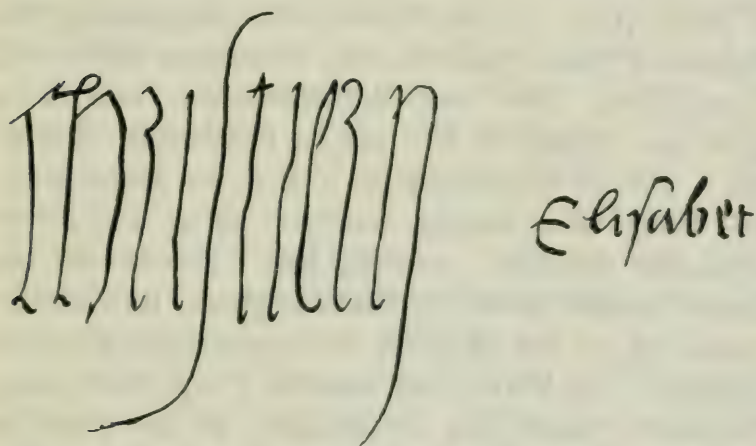 Chriſtiern Eliſabet